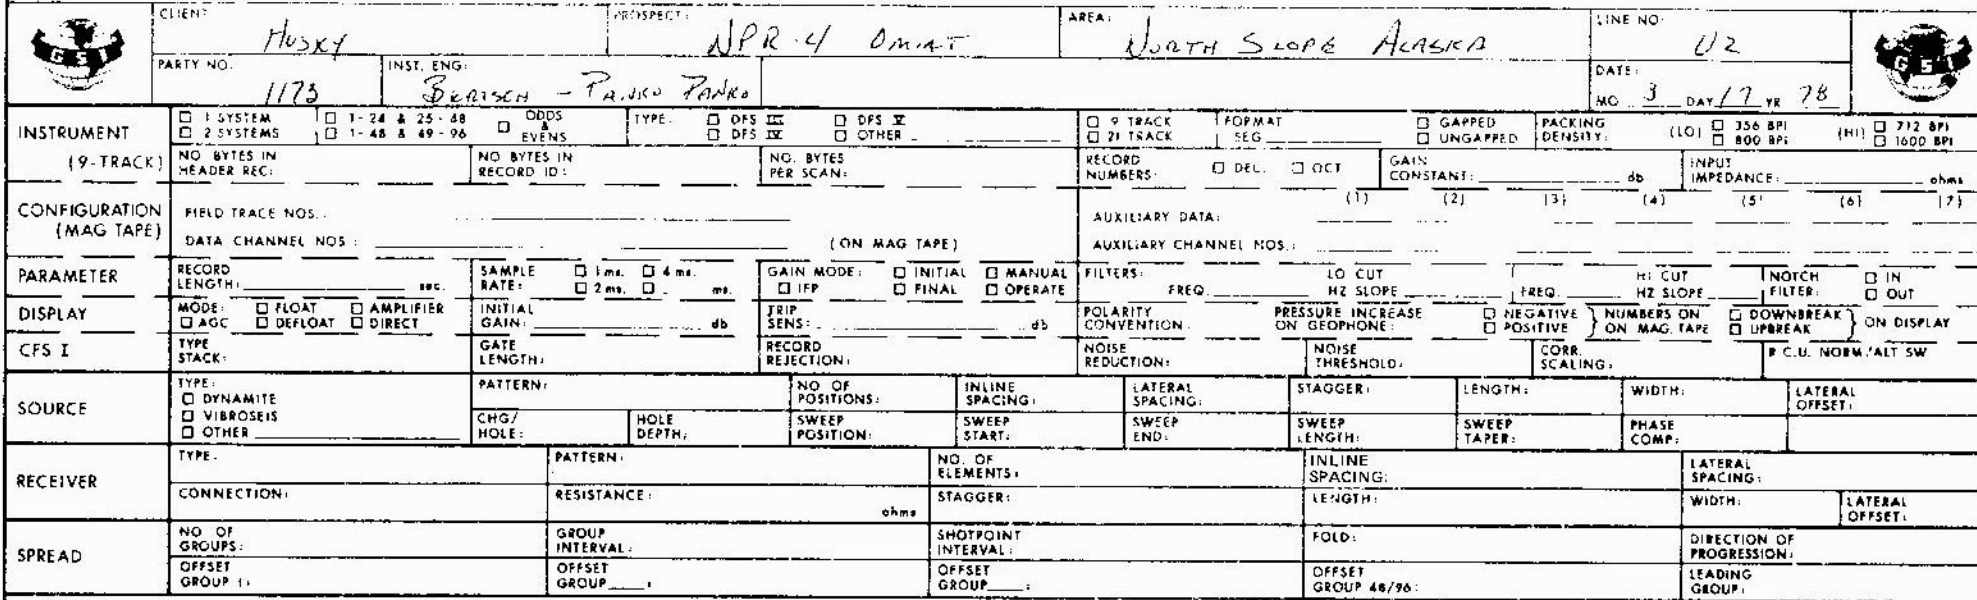 CLIENT: PROSPECT: AREA: LINE NO:
HUSKY NPR-4 NORTH SLOPE ALASKA U2
PARTY NO: INST. ENG: DATE:
1173 BERTSCH - PANKO MO. 3 DAY 17 YR 78
GSI
GSI
INSTRUMENT
(9-TRACK)
☐ 1 SYSTEM ☐ 1-24 & 25-48 ☐ ODDS & EVENS TYPE: ☐ DFS III ☐ DFS V ☐ 9 TRACK FORMAT ☐ GAPPED PACKING DENSITY: (LO) ☐ 356 BPI (HI) ☐ 712 BPI
☐ 2 SYSTEMS ☐ 1-48 & 49-96 ☐ DFS IV ☐ OTHER ☐ 21 TRACK SEG ☐ UNGAPPED ☐ 800 BPI ☐ 1600 BPI
NO BYTES IN HEADER REC: NO BYTES IN RECORD ID: NO. BYTES PER SCAN: RECORD NUMBERS: ☐ DEL. ☐ OCT GAIN CONSTANT: db INPUT IMPEDANCE: ohms
CONFIGURATION
(MAG TAPE)
(1) (2) (3) (4) (5) (6) (7)
FIELD TRACE NOS.: AUXILIARY DATA:
DATA CHANNEL NOS: (ON MAG TAPE) AUXILIARY CHANNEL NOS.:
PARAMETER
RECORD LENGTH: sec. SAMPLE RATE: ☐ 1 ms. ☐ 4 ms. ☐ 2 ms. ☐ ms. GAIN MODE: ☐ INITIAL ☐ MANUAL ☐ IFP ☐ FINAL ☐ OPERATE FILTERS: FREQ. LO CUT HZ SLOPE FREQ. HI CUT HZ SLOPE NOTCH FILTER: ☐ IN ☐ OUT
DISPLAY
MODE: ☐ FLOAT ☐ AMPLIFIER ☐ AGC ☐ DEFLOAT ☐ DIRECT INITIAL GAIN: db TRIP SENS: db POLARITY CONVENTION: PRESSURE INCREASE ON GEOPHONE: ☐ NEGATIVE ☐ POSITIVE } NUMBERS ON MAG. TAPE ☐ DOWNBREAK ☐ UPBREAK } ON DISPLAY
CFS I
TYPE STACK: GATE LENGTH: RECORD REJECTION: NOISE REDUCTION: NOISE THRESHOLD: CORR. SCALING: R.C.U. NORM./ALT SW
SOURCE
TYPE: PATTERN: NO OF POSITIONS: INLINE SPACING: LATERAL SPACING: STAGGER: LENGTH: WIDTH: LATERAL OFFSET:
☐ DYNAMITE
☐ VIBROSEIS
☐ OTHER
CHG/HOLE: HOLE DEPTH: SWEEP POSITION: SWEEP START: SWEEP END: SWEEP LENGTH: SWEEP TAPER: PHASE COMP:
RECEIVER
TYPE: PATTERN: NO. OF ELEMENTS: INLINE SPACING: LATERAL SPACING:
CONNECTION: RESISTANCE: ohms STAGGER: LENGTH: WIDTH: LATERAL OFFSET:
SPREAD
NO OF GROUPS: GROUP INTERVAL: SHOTPOINT INTERVAL: FOLD: DIRECTION OF PROGRESSION:
OFFSET GROUP 1: OFFSET GROUP____: OFFSET GROUP____: OFFSET GROUP 48/96: LEADING GROUP: